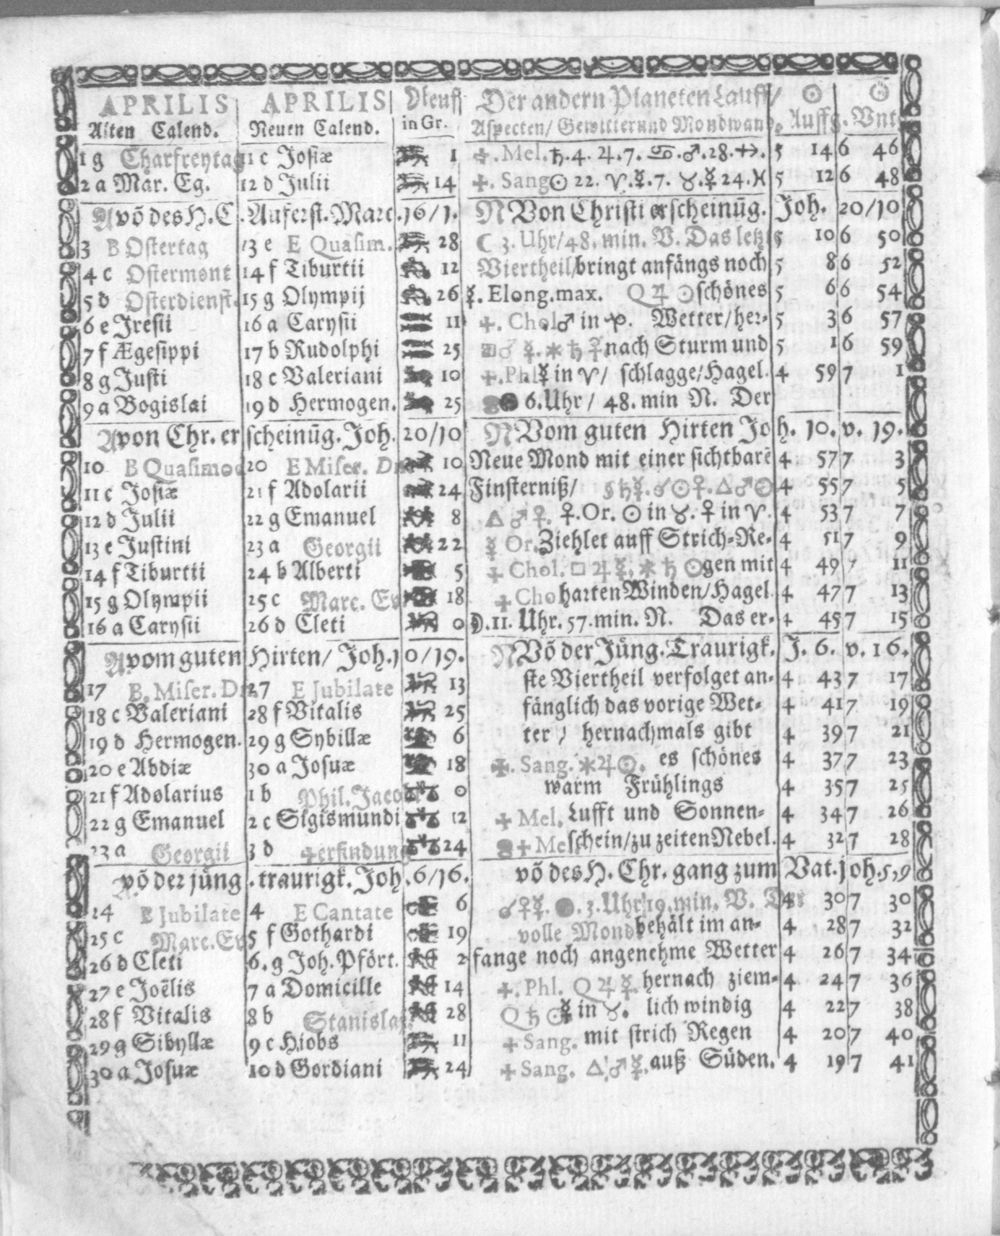 APRILIS APRILIS Neuſſ Der andern Planeten Lauff/ ☉ ☉
Alten Calend. Neuen Calend. in Gr. Aſpecten/ Gewitter und Mondwand. Auffg. Unt
1 g Charfreytag 11 c Joſiæ 1 ✠. Mel. ♄. 4. ♃. 7. ♋. ♂. 28. ♐. 5 14 6 46
2 a Mar. Eg. 12 d Julii 14 ✠. Sang ☉ 22. ♈. ☿. 7. ♉. ☿ 24. ♓ 5 12 6 48
A võ des H. C. Auferſt. Marc. 16/1. N Von Chriſti erſcheinũg. Joh. 20/10
3 B Oſtertag 13 e E Quaſim. 28 ☾ 3. Uhr/48. min. V. Das letz 5 10 6 50
4 c Oſtermont 14 f Tiburtii 12 Viertheil/bringt anfängs noch 5 8 6 52
5 d Oſterdienſt. 15 g Olympij 26 ☿. Elong. max. Q ♃ ☉ ſchönes 5 6 6 54
6 e Ireſii 16 a Caryſii 11 ✠. Chol ♂ in ♈. Wetter/her- 5 3 6 57
7 f Ægeſippi 17 b Rudolphi 25 ♂ ☿. ✶ ♄ ☿ nach Sturm und 5 1 6 59
8 g Juſti 18 c Valeriani 10 ✠. Phl ☿ in ♈/ ſchlagge/Hagel. 4 59 7 1
9 a Bogislai 19 d Hermogen. 25 ● 6. Uhr/ 48. min N. Der
A von Chr. erſcheinũg. Joh. 20/10 N Vom guten Hirten Joh. 10. v. 19.
10 B Quaſimod 20 E Miſer. D 10 Neue Mond mit einer ſichtbarē 4 57 7 3
11 c Joſiæ 21 f Adolarii 24 Finſterniß/ ☌ ☉ ♀. △ ♂ ☉ 4 55 7 5
12 d Julii 22 g Emanuel 8 △ ♂ ♀. ♀. Or. ☉ in ♉. ♀ in ♈. 4 53 7 7
13 e Juſtini 23 a Georgii 22 ☿ Or. Ziehlet auff Strich-Re- 4 51 7 9
14 f Tiburtii 24 b Alberti 5 ✠ Chol. □ ♃ ☿. ✶ ♄ ☉ gen mit 4 49 7 11
15 g Olympii 25 c Marc. Ev 18 ✠ Cho harten Winden/Hagel 4 47 7 13
16 a Caryſii 26 d Cleti 0 ☽. 11. Uhr. 57. min. N. Das er- 4 45 7 15
A vom guten Hirten/ Joh. 10/19. N Võ der Jüng. Traurigk. J. 6. v. 16.
17 B. Miſer. D 27 E Jubilate 13 ſte Viertheil verfolget an- 4 43 7 17
18 c Valeriani 28 f Vitalis 25 fänglich das vorige Wet- 4 41 7 19
19 d Hermogen. 29 g Sybillæ 6 ter/ hernachmals gibt 4 39 7 21
20 e Abdiæ 30 a Joſuæ 18 ✠. Sang. ✶ ♃ ☉. es ſchönes 4 37 7 23
21 f Adolarius 1 b Phil. Jaco 0 warm Frühlings 4 35 7 25
22 g Emanuel 2 c Sigismundi 12 ✠ Mel. Lufft und Sonnen- 4 34 7 26
23 a Georgii 3 d ✠erfindun 24 ✠ Me ſchein/zu zeiten Nebel. 4 32 7 28
võ der jüng. traurigk. Joh. 6/16. võ des H. Chr. gang zum Vat. joh. 5,9
24 E Jubilate 4 E Cantate 6 ☌ ♀ ☿. ●. 3. Uhr 19. min. V. Der 4 30 7 30
25 c Marc. Ev 5 f Gothardi 19 volle Mond behält im an- 4 28 7 32
26 d Cleti 6. g Joh. Pfört. 2 fange noch angenehme Wetter 4 26 7 34
27 e Joēlis 7 a Domicille 14 ✠. Phl. Q ♃ ☿ hernach ziem- 4 24 7 36
28 f Vitalis 8 b Stanislai 28 Q ♄ ☉ ☿ in ♉. lich windig 4 22 7 38
29 g Sibyllæ 9 c Hiobs 11 ✠ Sang. mit ſtrich Regen 4 20 7 40
30 a Joſuæ 10 d Gordiani 24 ✠ Sang. △ ♂ ☿. auß Süden. 4 19 7 41